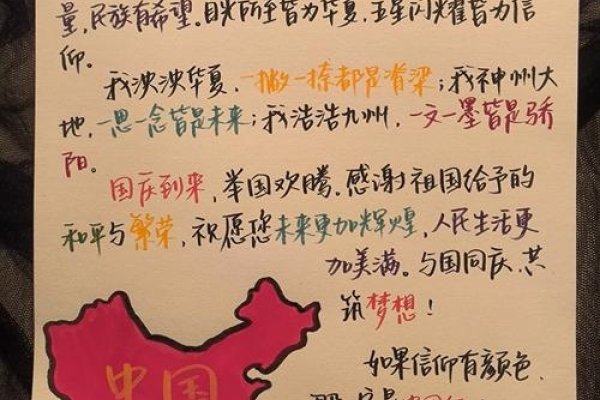 量，民族有希望。目光所至皆为华夏，五星闪耀皆为信
仰。
我泱泱华夏，一撇一捺都是脊梁；我神州大
地，一思一念皆是未来；我浩浩九州，一文一墨皆是骄
阳。
国庆到来，举国欢腾。感谢祖国给予的
和平与繁荣，祝愿您未来更加辉煌，人民生活更
加美满。与国同庆，共
筑梦想！
如果信仰有颜色，
中国